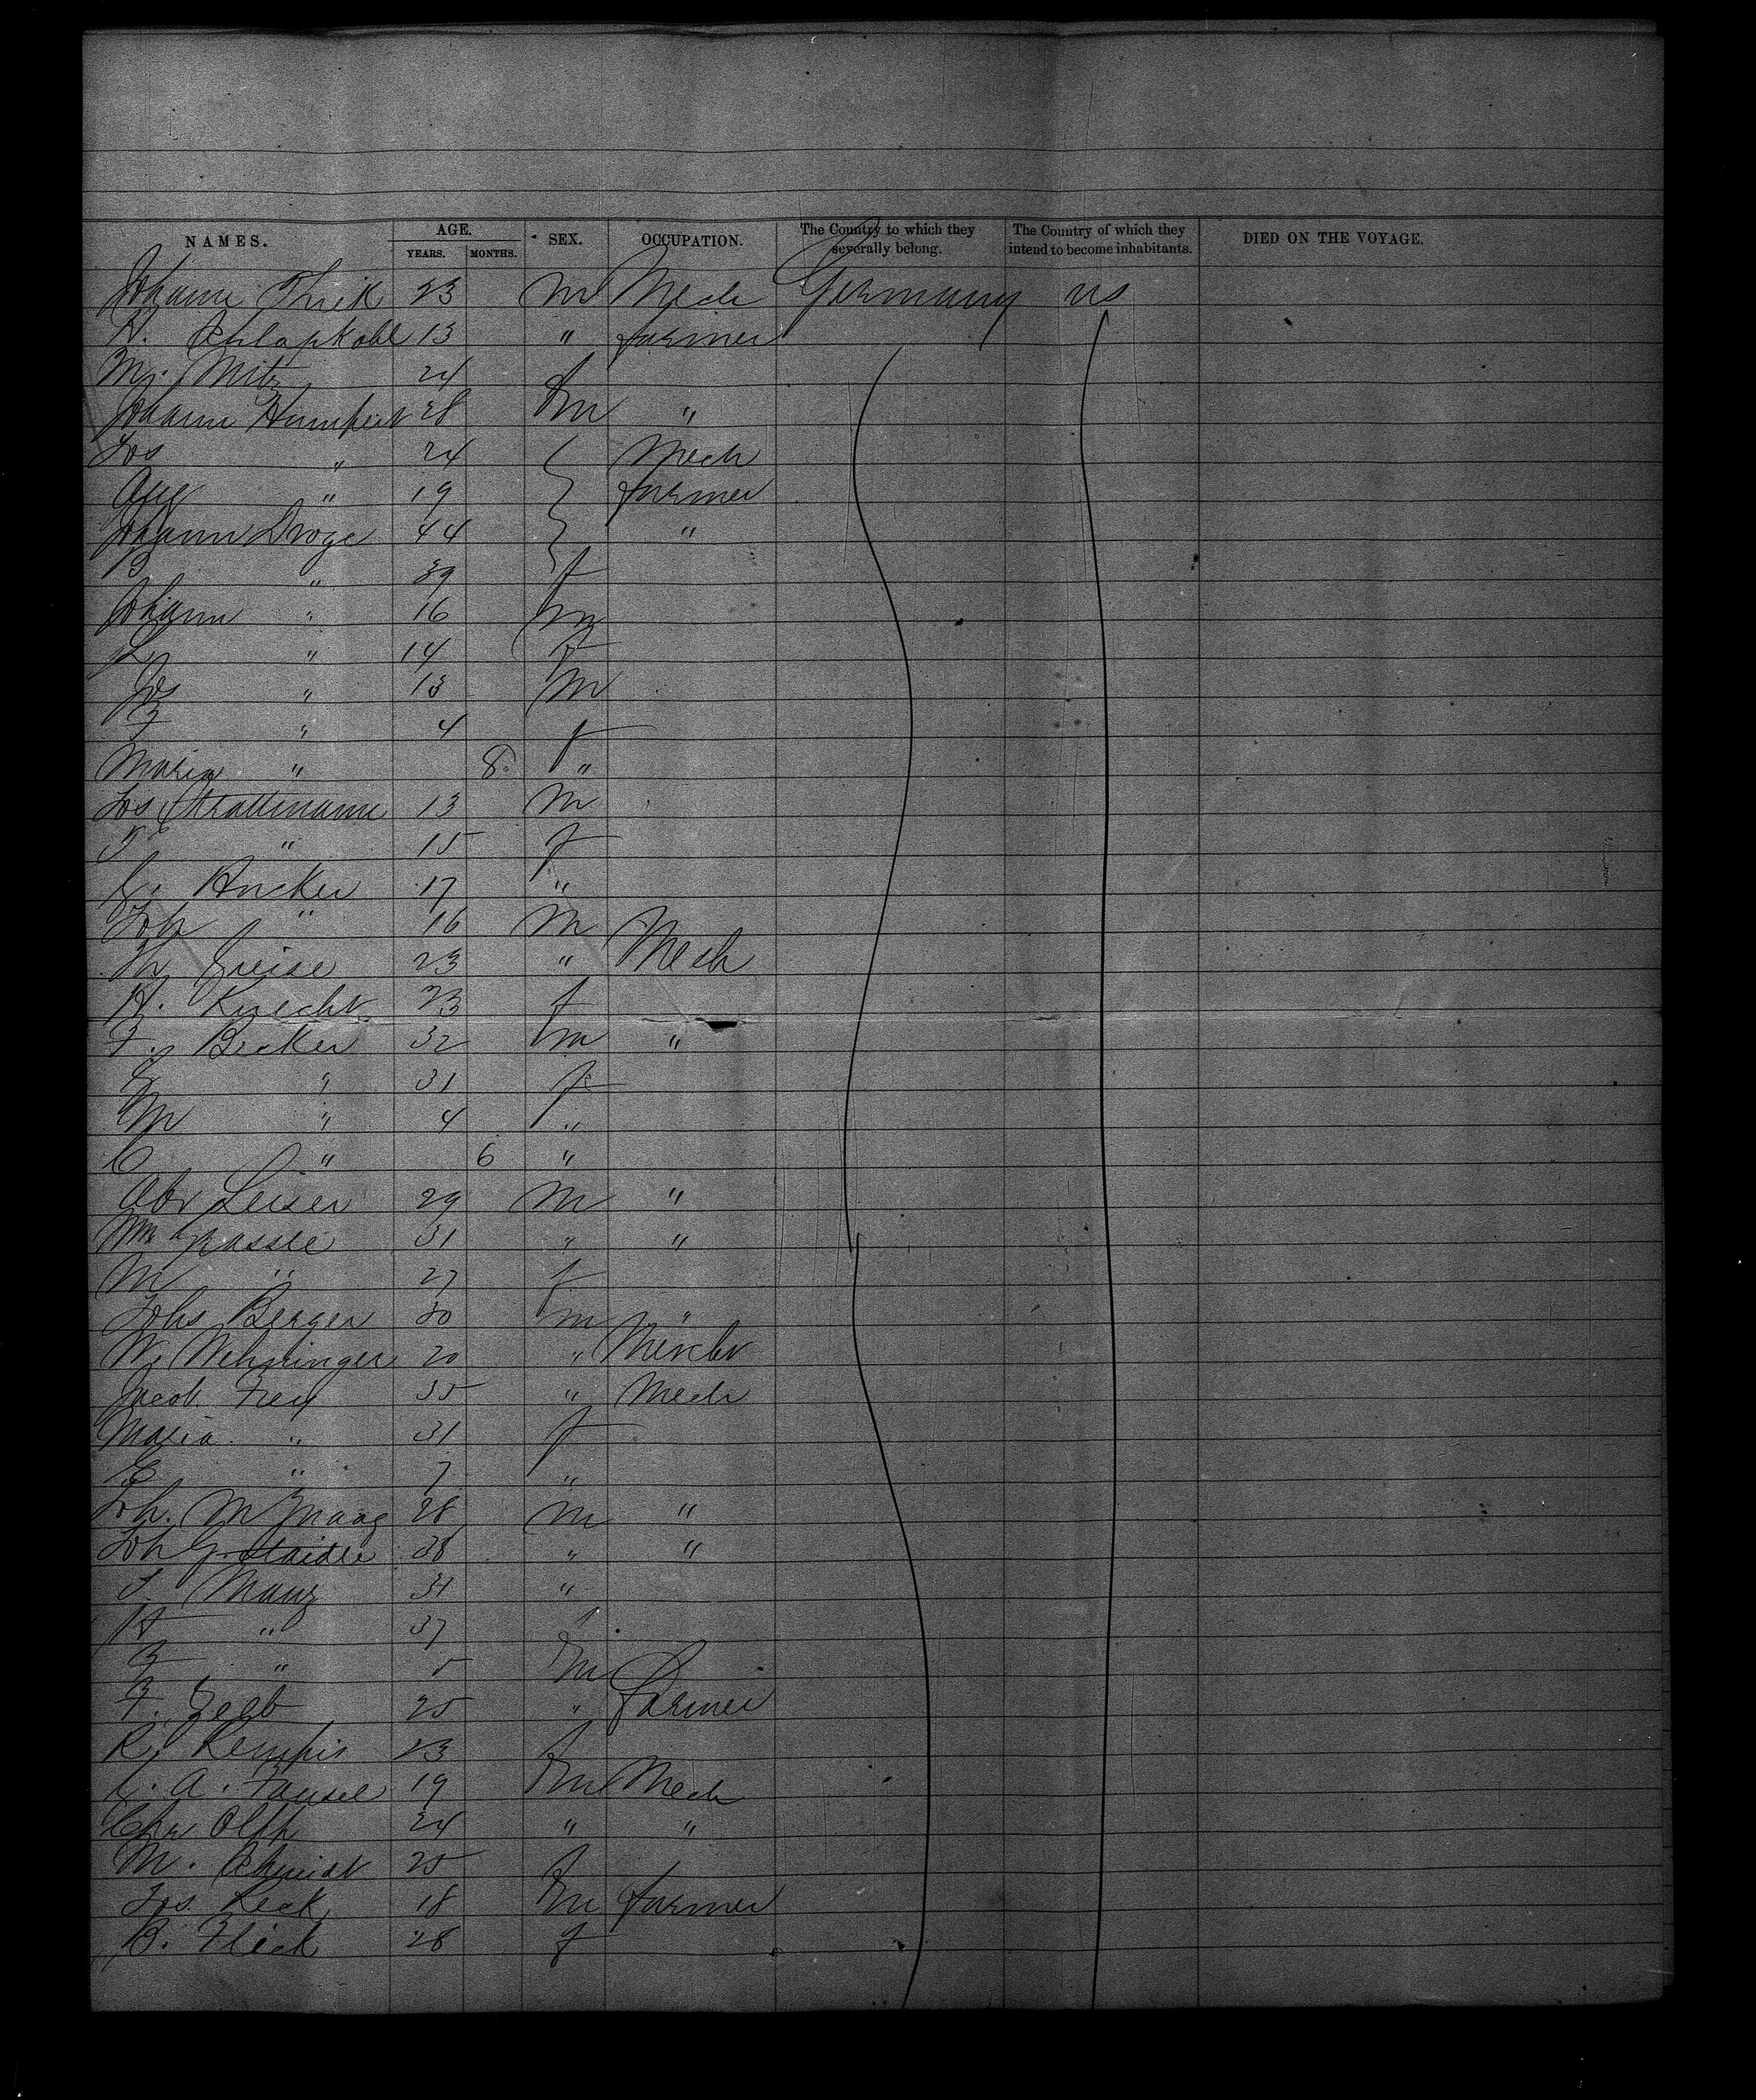 NAMES. AGE. SEX. OCCUPATION. The Country to which they severally belong. The Country of which they intend to become inhabitants. DIED ON THE VOYAGE.
YEARS. MONTHS.
Johann Thrik 23 M Mech Germany US
H. Schlapkohl 13 " farmer
M. Mitz 24 f
Johann Humpert 28 m "
Jos " 24 Mech
Aug " 19 farmer
Johann Droge 44 "
B " 39 f
Johann " 16 m
L " 14 f
Jos " 13 M
F " 4 f
Maria " 8 "
Jos Strattmann 13 M
T " 15 f
C. Ancker 17 "
Joh " 16 M
Th Greise 23 " Mech
A. Knecht 23 f
F. Becker 32 m "
E " 31 f
M " 4 "
C " 6 "
Abr Leiser 29 M "
Wm Passle 31 " "
M " 27 f
Johs Berger 30 m "
W. Wehringer 20 " Mercht
Jacob Frey 35 " Mech
Maria " 31 f
E " 7 "
Joh. M Maag 28 M "
Joh G Staidle 38 " "
J. Manz 31 "
A " 37 f
" 5 m
F. Zelb 25 " Farmer
R. Kempis 23 f
C. A. Fausel 19 m Mech
Chr Olph 24 " "
M. Schmidt 25 f
Jos. Keck 18 m farmer
B. Fleck 28 f